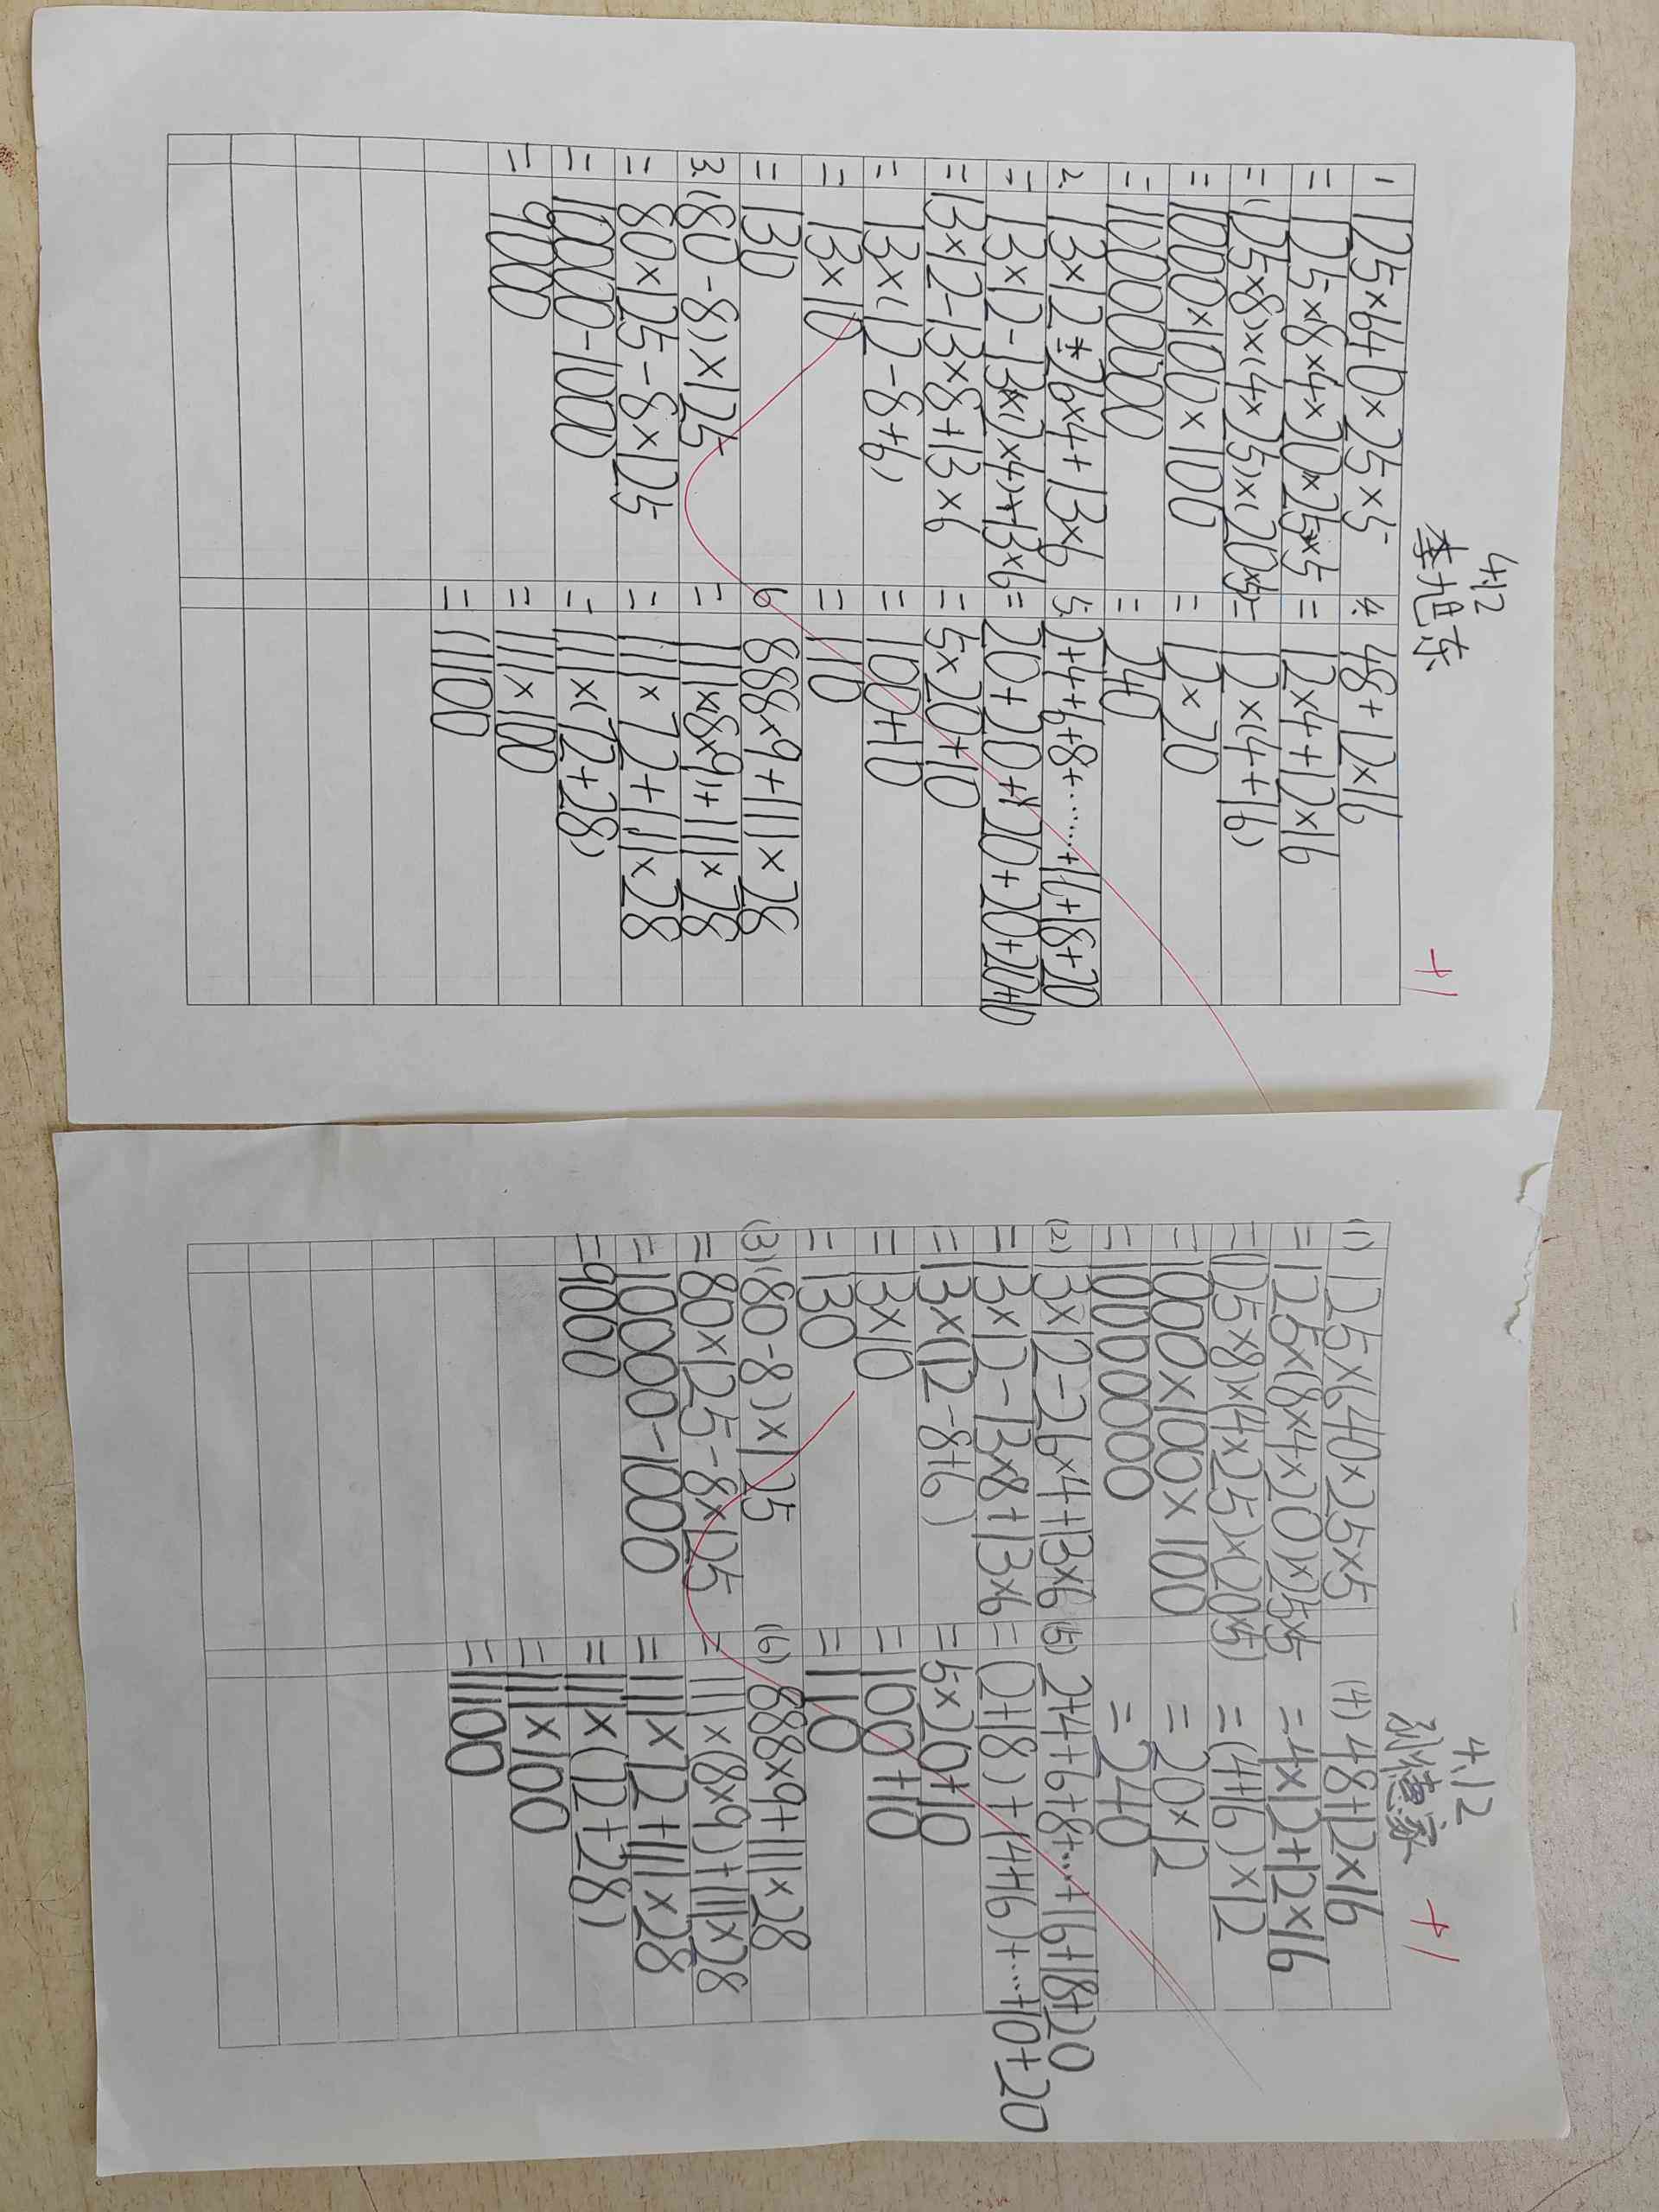 4.12
李旭东
+1
1. 125×640×25×5
=125×8×4×20×25×5
=(125×8)×(4×25)×(20×5)
=1000×100×100
=10000000
2. 13×12-26×4+13×6
=13×12-13×(2×4)+13×6
=13×12-13×8+13×6
=13×(12-8+6)
=13×10
=130
3.(80-8)×125
=80×125-8×125
=10000-1000
=9000
4. 48+12×16
=12×4+12×16
=12×(4+16)
=12×20
=240
5. 2+4+6+8+……+16+18+20
=20+20+20+20+20+10
=5×20+10
=100+10
=110
6 888×9+111×28
=111×(8×9)+111×28
=111×72+111×28
=111×(72+28)
=111×100
=11100
4.12
刘慧家
+1
(1) 125×640×25×5
=125×(8×4×20)×25×5
=(125×8)×(4×25)×(20×5)
=1000×100×100
=10000000
(2) 13×12-26×4+13×6
=13×12-13×8+13×6
=13×(12-8+6)
=13×10
=130
(3)(80-8)×125
=80×125-8×125
=10000-1000
=9000
(4) 48+12×16
=4×12+12×16
=(4+16)×12
=20×12
=240
(5) 2+4+6+8+…+16+18+20
=(2+18)+(4+16)+…+10+20
=5×20+10
=100+10
=110
(6) 888×9+111×28
=111×(8×9)+111×28
=111×72+111×28
=111×(72+28)
=111×100
=11100